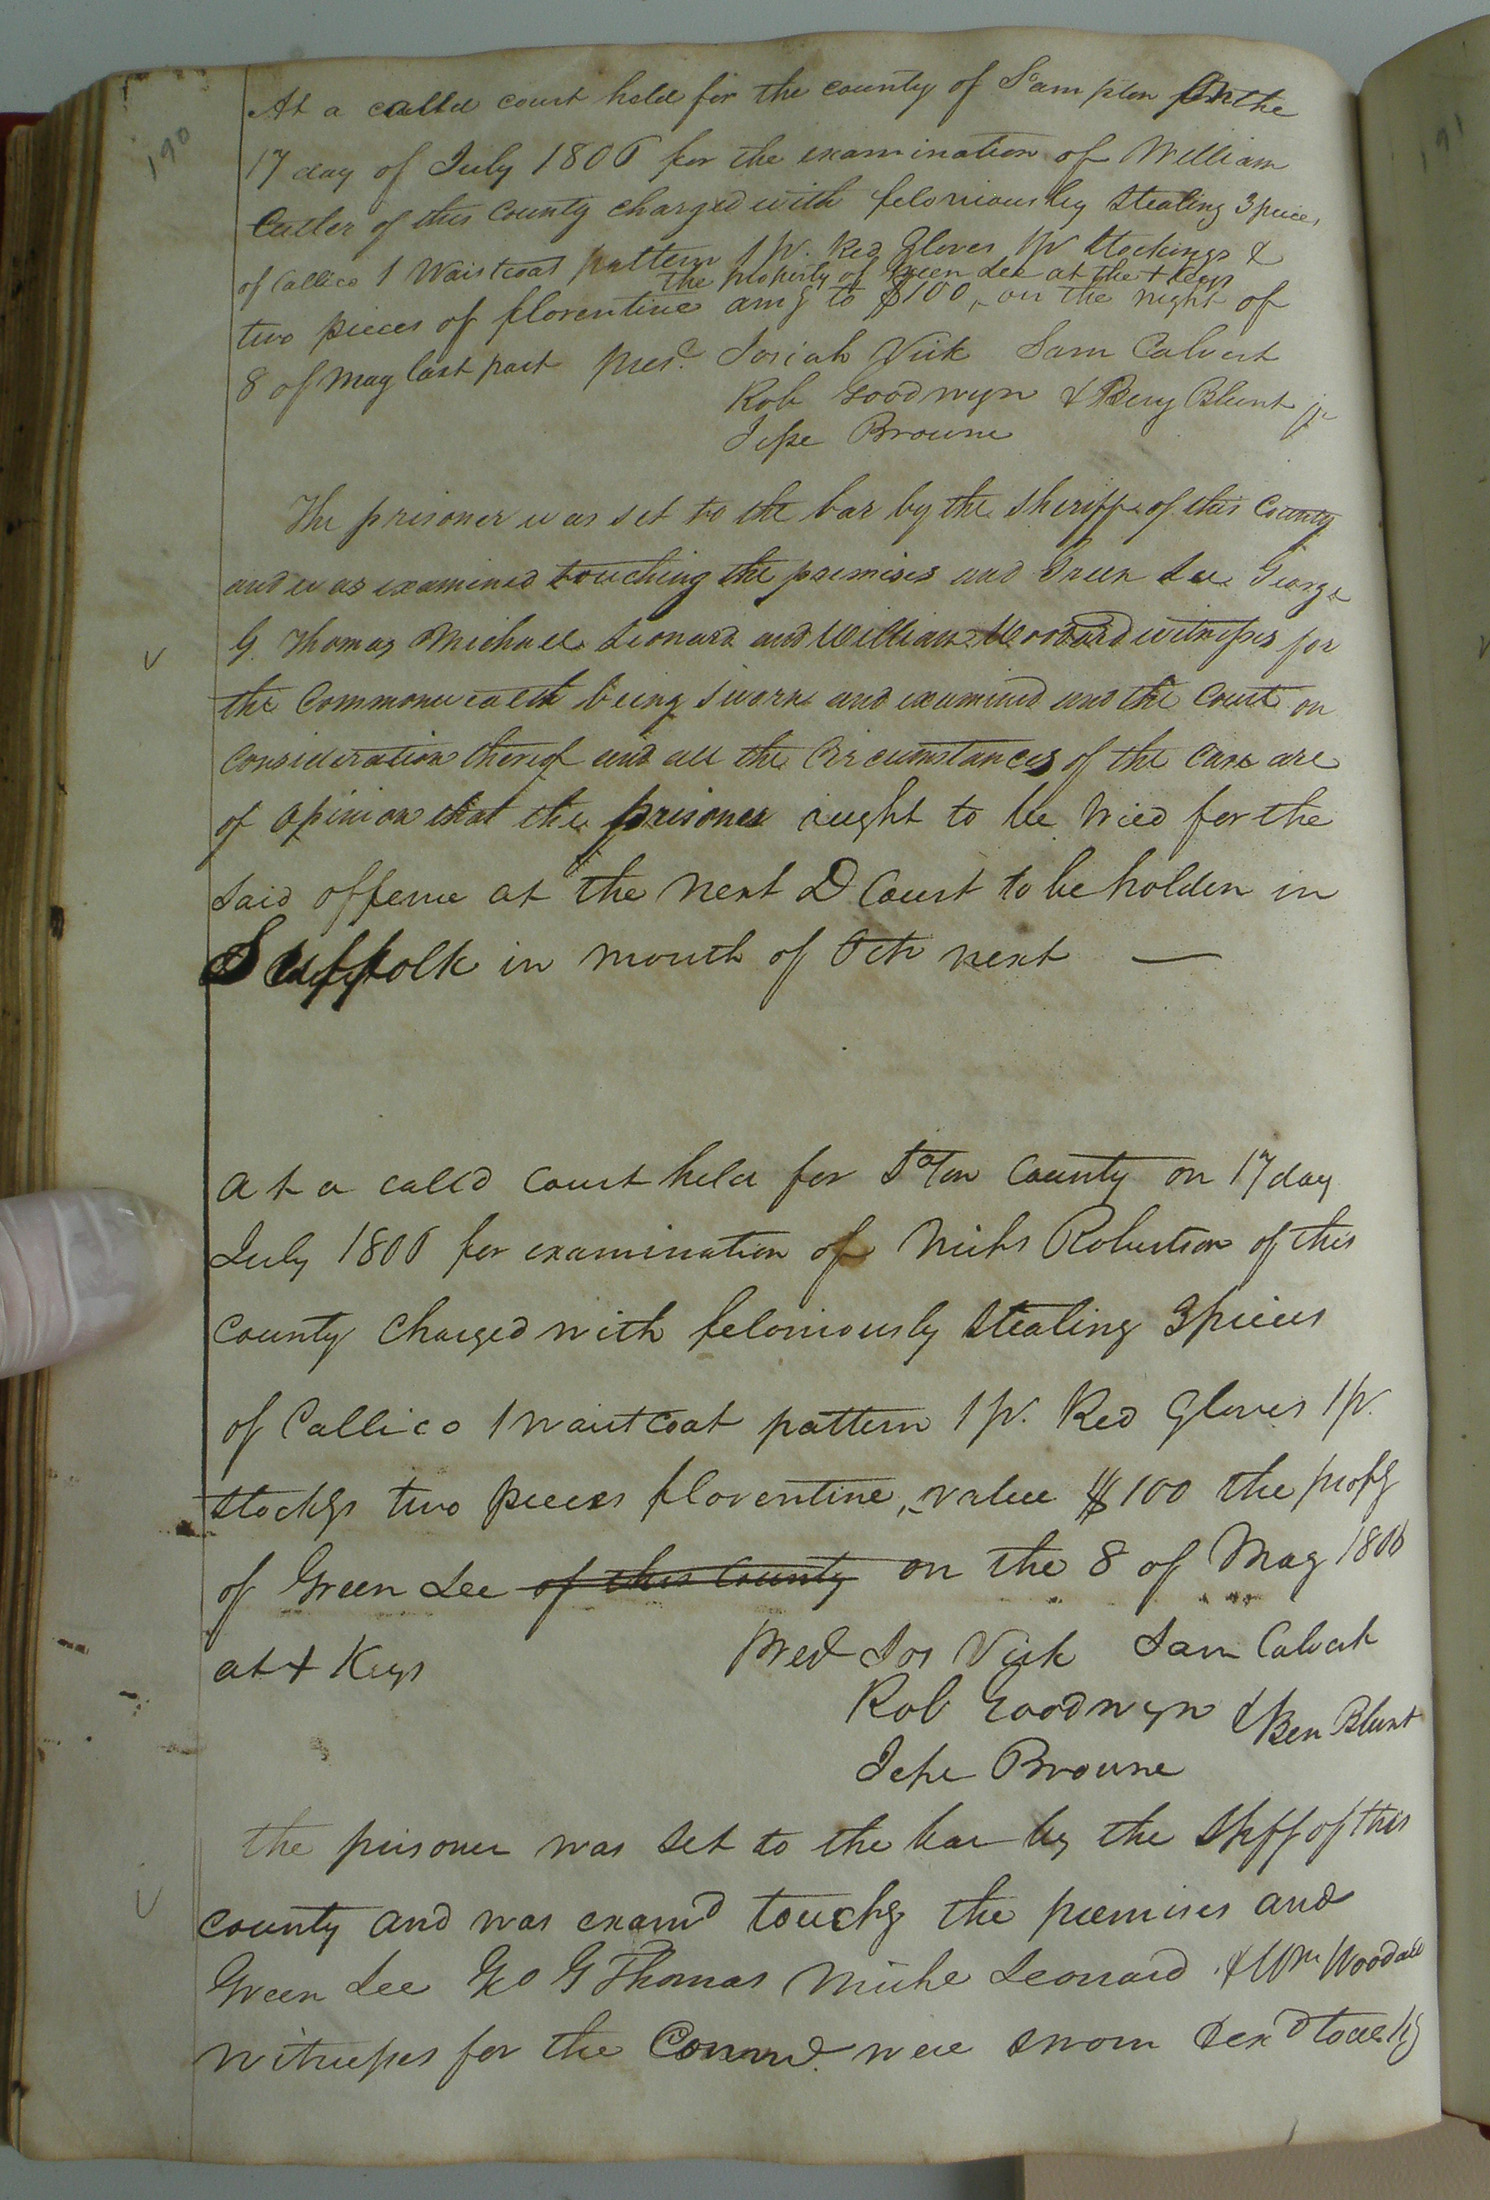 190
At a calld court held for the county of S'ampton On the
17 day of July 1806 for the examination of William
Cutler of this County charged with feloniously Stealing 3 pieces
of Callico 1 Waistcoat pattern 1 pr. Red Gloves 1 pr Stockings &
the property of Green Lee at the + Keys
two pieces of florentine amg to $100, on the night of
8 of May last past presd. Josiah Vick Sam Calvert
Rob Goodwyn & Benj Blunt jr
Jesse Browne
The prisoner was set to the bar by the Sheriff of this County
and was examined touching the premises and Green Lee George
G. Thomas Michael Leonard and William Woodard witnesses for
the Commonwealth being sworn and examined and the Court on
Consideration thereof and all the Circumstances of the Case are
of opinion that the prisoner ought to be tried for the
Said offence at the next D Court to be holden in
Suffolk in month of Octr next —
At a calld Court held for So/ton County on 17 day
July 1806 for examination of Nichs Robertson of this
County Charged with feloniously Stealing 3 pieces
of Callico 1 waistcoat pattern 1 pr. Red Gloves 1 pr.
Stockgs two pieces florentine, value $100 the propy
of Green Lee of this County on the 8 of May 1806
at + Keys Presd Jos Vick Sam Calvert
Rob Goodwyn & Ben Blunt
Jesse Browne
the prisoner was Set to the bar by the Shff of this
County and was examd touchg the premises and
Green Lee Geo G Thomas Michl Leonard & Wm Woodard
witnesses for the Commw. were sworn & exd touchg
191